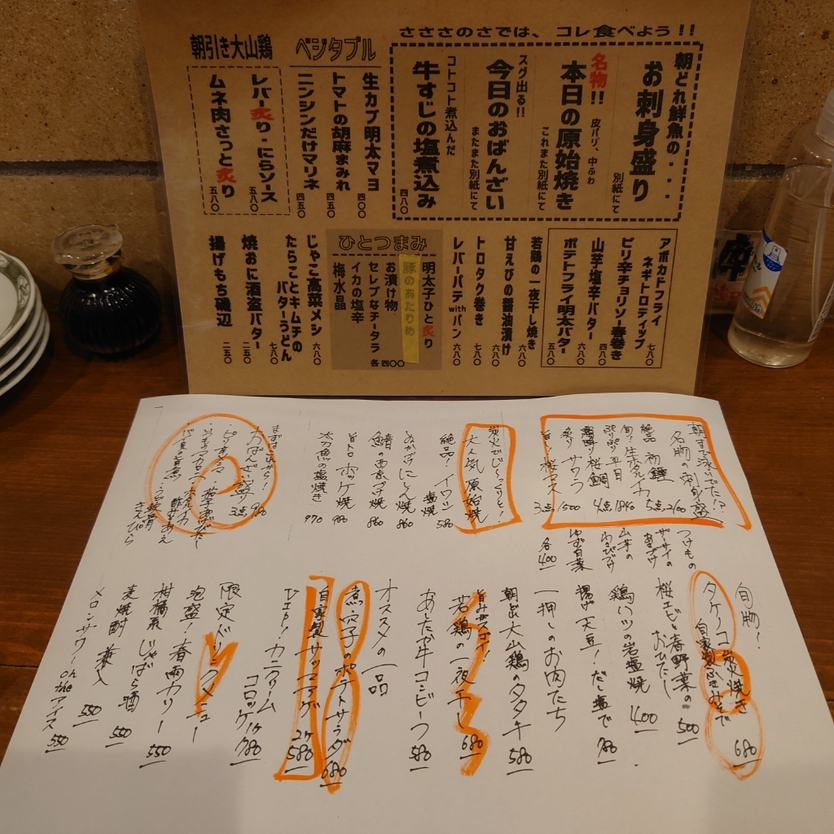 さささのさでは、コレ食べよう!!
朝どれ鮮魚の・・・
お刺身盛り
別紙にて
名物!!
皮パリ、中ふわ
本日の原始焼き
これまた別紙にて
スグ出る!!
今日のおばんざい
またまた別紙にて
コトコト煮込んだ
牛すじの塩煮込み
四八〇
ベジタブル
生カブ明太マヨ
四〇〇
トマトの胡麻まみれ
四五〇
ニンジンだけマリネ
四五〇
朝引き大山鶏
レバー炙り・にらソース
五八〇
ムネ肉さっと炙り
五八〇
アボカドフライ
ネギトロディップ
七八〇
ピリ辛チョリソー春巻き
六八〇
山芋塩辛バター
四八〇
ポテトフライ明太バター
五八〇
若鶏の一夜干し焼き
六八〇
甘えびの醤油漬け
六八〇
トロタク巻き
七八〇
レバーパテwithパン
六八〇
ひとつまみ
明太子ひと炙り
豚のあたりめ
お漬け物
セレブなチータラ
イカの塩辛
梅水晶
各四〇〇
じゃこ高菜メシ
六八〇
たらことキムチの
バターうどん
七八〇
焼おに酒盗バター
二五〇
揚げもち磯辺
二五〇
朝まで泳いでた!?
名物の刺身盛
絶品 初鰹
旬!生ホタルイカ
炙りサワラ
旨!桜マス
3点 1500
4点 1840
5点 2100
炭火でじっくりと!
大人気 原始焼
絶品!イワシ 塩焼 580
ぬかづけにしん焼 860
鯖の西京づけ焼 860
旨トロ ホッケ焼 980
太刀魚の塩焼き 970
まずはこれから!
おばんざい盛
3点 980
つけもの
ヤサイのあさづけ
山芋のわさびづけ
ゆず白菜
各400
旬物!
タケノコ炭焼き
自家製ふきみそで
680
桜エビと春野菜の
おひたし
500
鶏ハツの岩塩焼 400
揚げ天豆!だし塩で
一押しのお肉たち
朝出大山鶏のタタキ 580
旨みがスゴイ!
若鶏の一夜干し 680
あたか牛コンビーフ 580
オススメの一品
煮穴子のポテトサラダ 680
自家製サツマアゲ 2ヶ 580
コロッケ1ヶ
限定ドリンクメニュー
泡盛!春雨カリー 550
柑橘系 じゃばら酒 550
麦焼酎 兼八 550
メロンサワー on the アイス 550